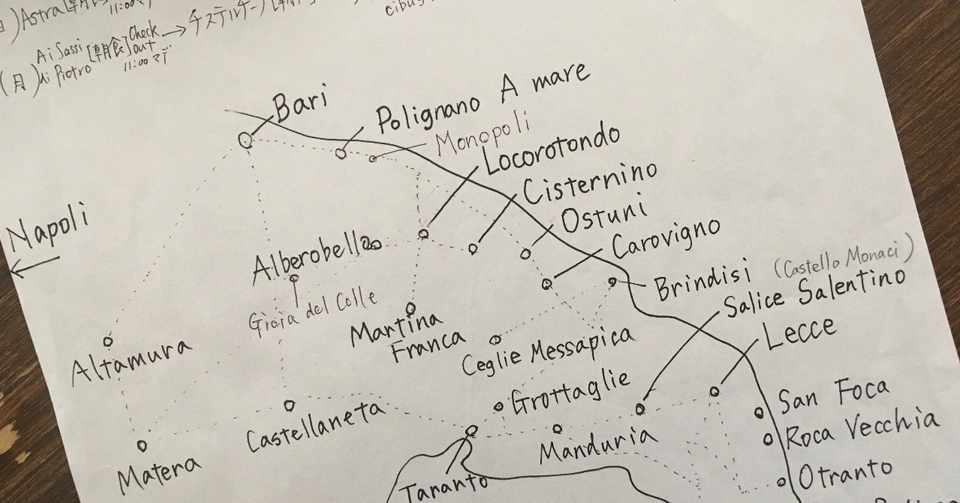 Astra
11:00マデ
Ai Sassi [朝食] Check out → チステルニーノ
(月) Ai Pietro 11:00マデ
cibus
Bari
Polignano A mare
Monopoli
Locorotondo
Cisternino
Ostuni
Napoli
Carovigno
Alberobello
Brindisi (Castello Monaci)
Gioia del Colle
Salice Salentino
Martina
Franca
Lecce
Altamura
Ceglie Messapica
Grottaglie
San Foca
Castellaneta
Roca Vecchia
Manduria
Matera
Otranto
Taranto